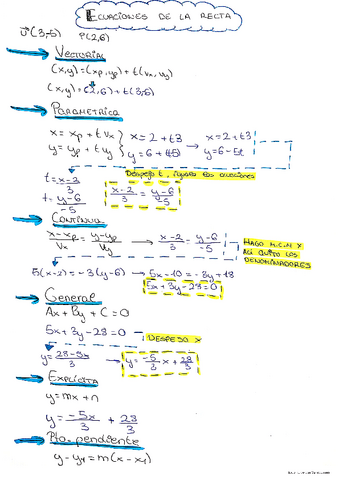 ECUACIONES DE LA RECTA
v(3,-5) P(2,6)
Vectorial
(x,y)=(xp,yp)+t(vx,vy)
(x,y)=(2,6)+t(3,-5)
Paramétrica
x=xp+tvx
y=yp+tvy
x=2+t3
y=6+t(-5)
x=2+t3
y=6-5t
Despejo t, igualo las ecuaciones
t=x-2/3
t=y-6/-5
x-2/3=y-6/-5
Continua
x-xp/vx=y-yp/vy
x-2/3=y-6/-5
HAGO M.C.M X
ASI QUITO LOS
DENOMINADORES
-5(x-2)=3(y-6)
5x-10=-3y+18
5x+3y-28=0
General
Ax+By+C=0
5x+3y-28=0
DESPEJO Y
y=28-5x/3
y=-5/3x+28/3
Explícita
y=mx+n
y=-5x/3+28/3
Pto. pendiente
y-y1=m(x-x1)